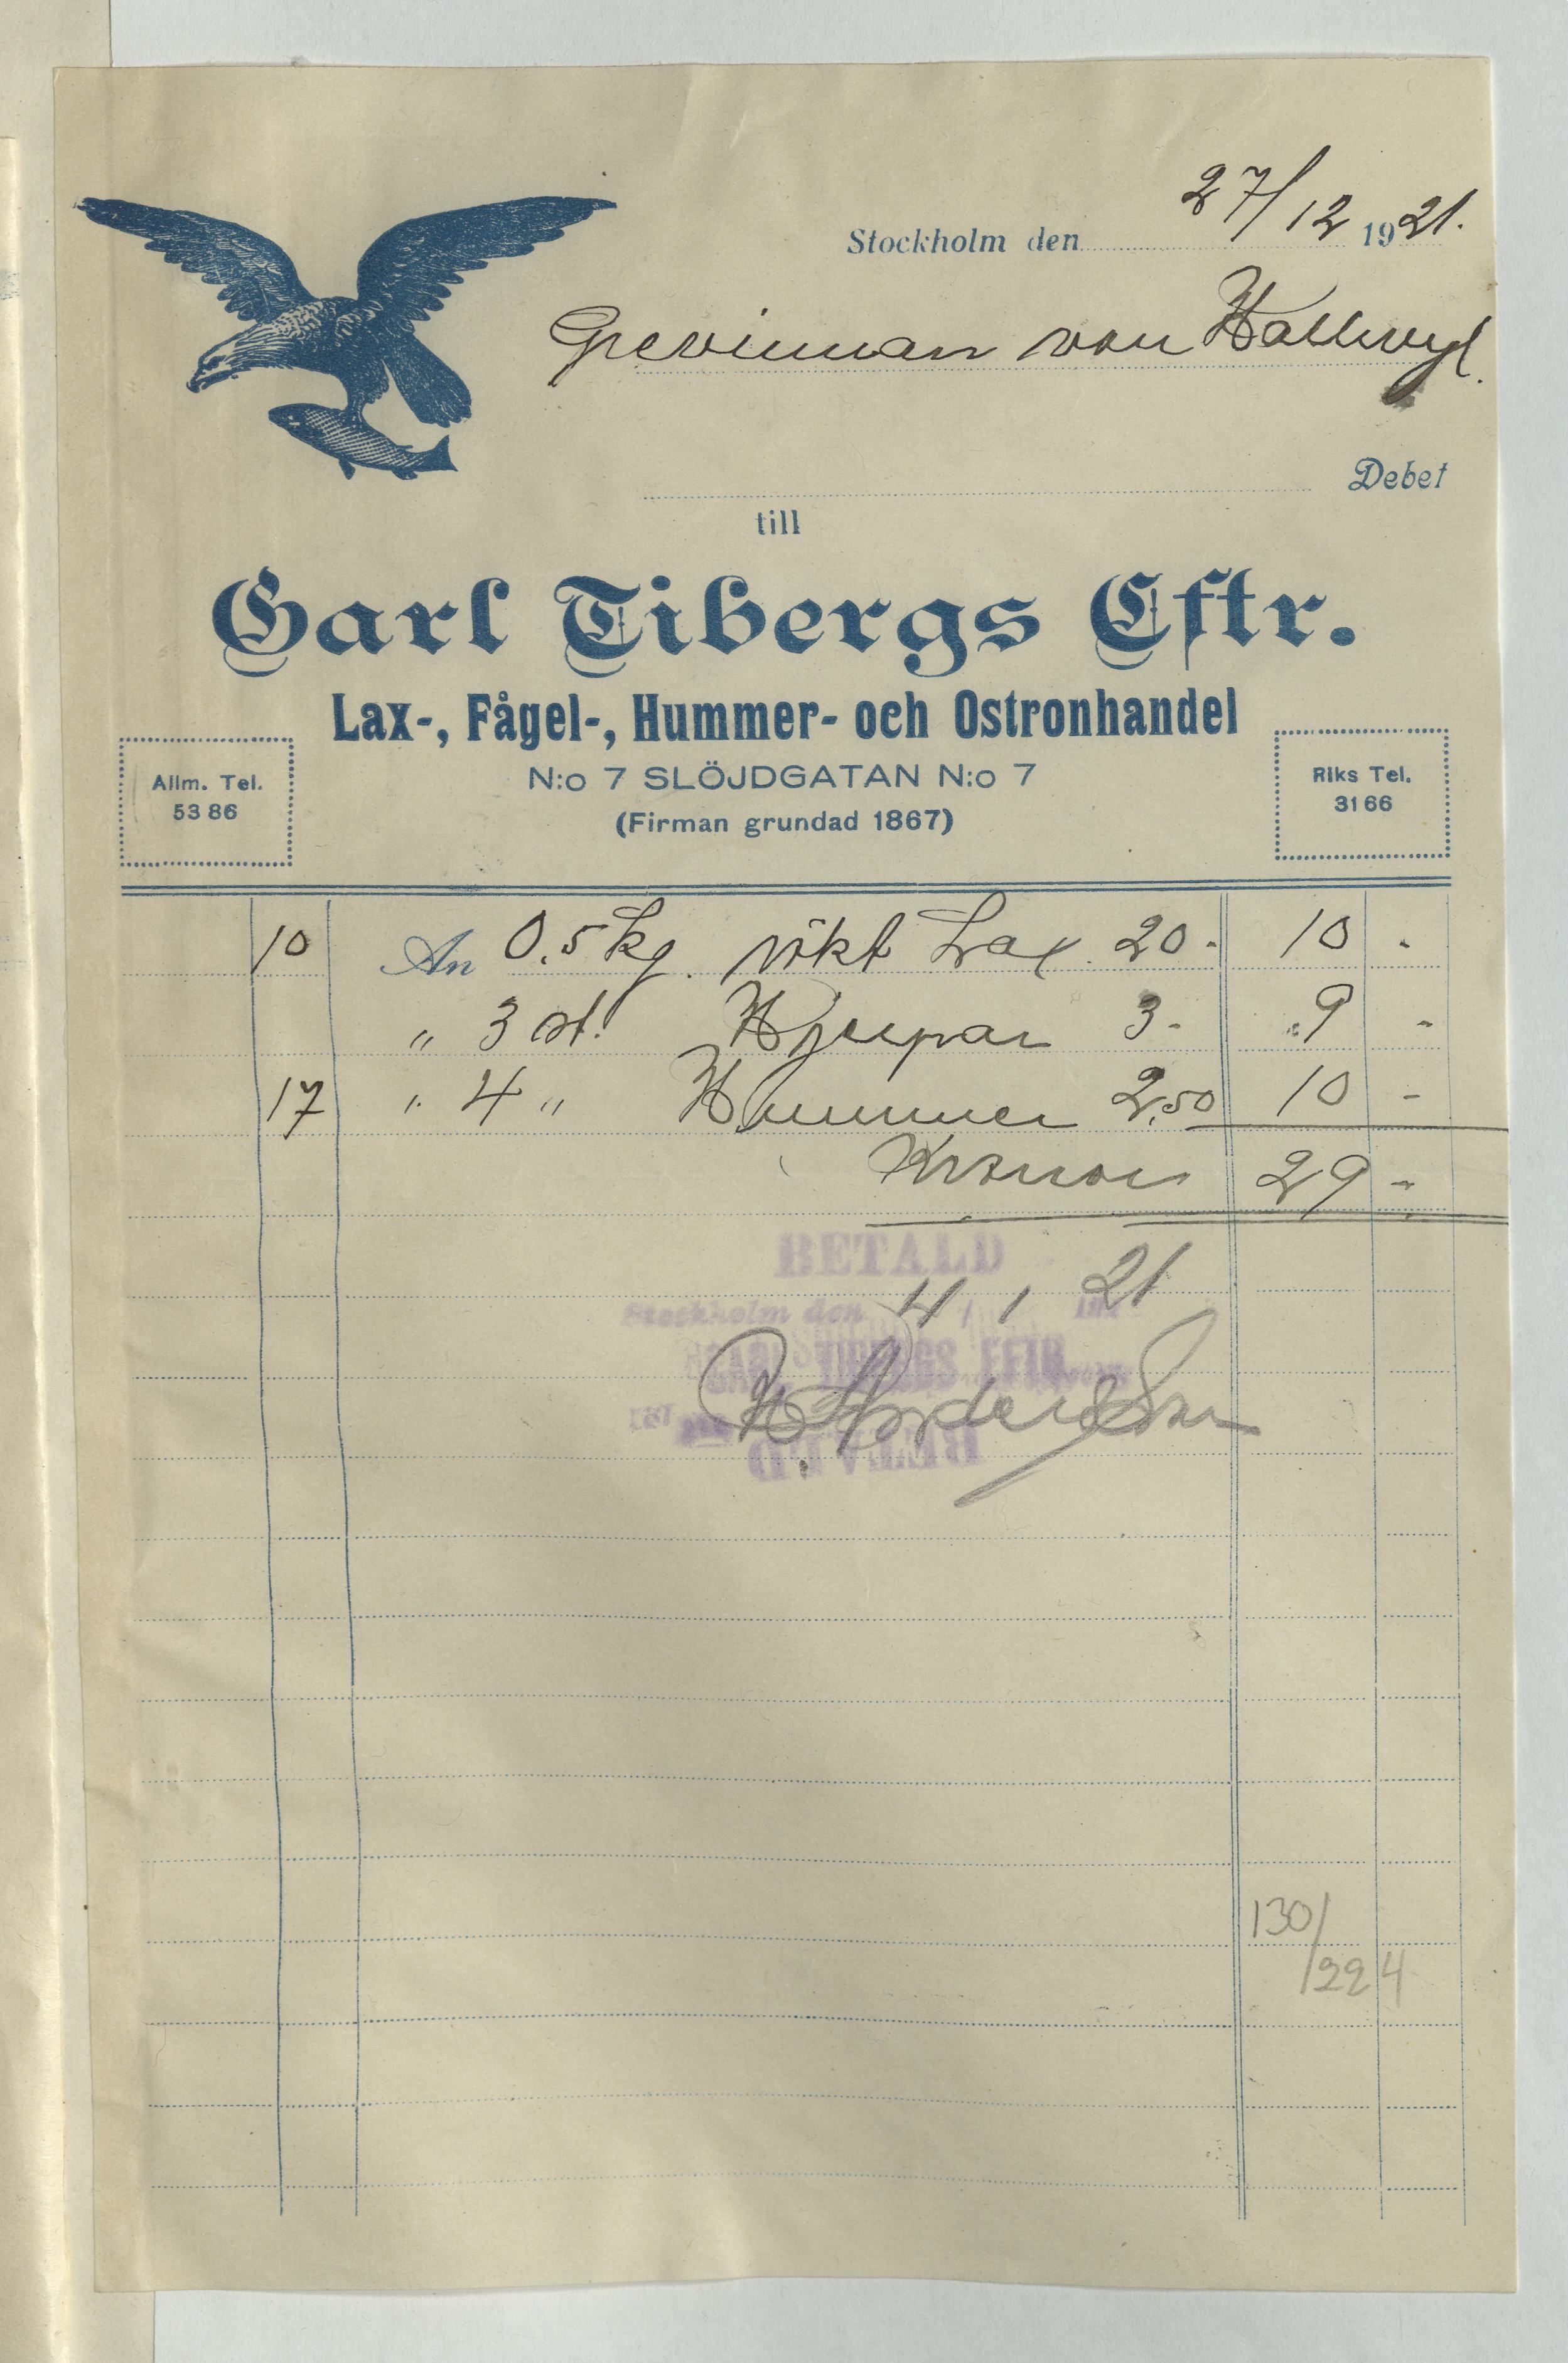 Stockholm den 27/12 1921.
Grevinnan von Hallwyl.
Debet
till
Carl Tibergs Eftr.
Lax-, Fågel-, Hummer- och Ostronhandel
N:o 7 SLÖJDGATAN N:o 7
(Firman grundad 1867)
Allm. Tel.
53 86
Riks Tel.
31 66
10 An 0,5 kg. rökt Lax. 20- 10 -
" 3 st. Hjerpar 3- 9 -
17 " 4 " Hummer 2,50 10 -
Kronor 29 -
BETALD
Stockholm den 4 / 1 21
CARL TIBERGS EFTR
H Andersson
BETALD
130/
/224